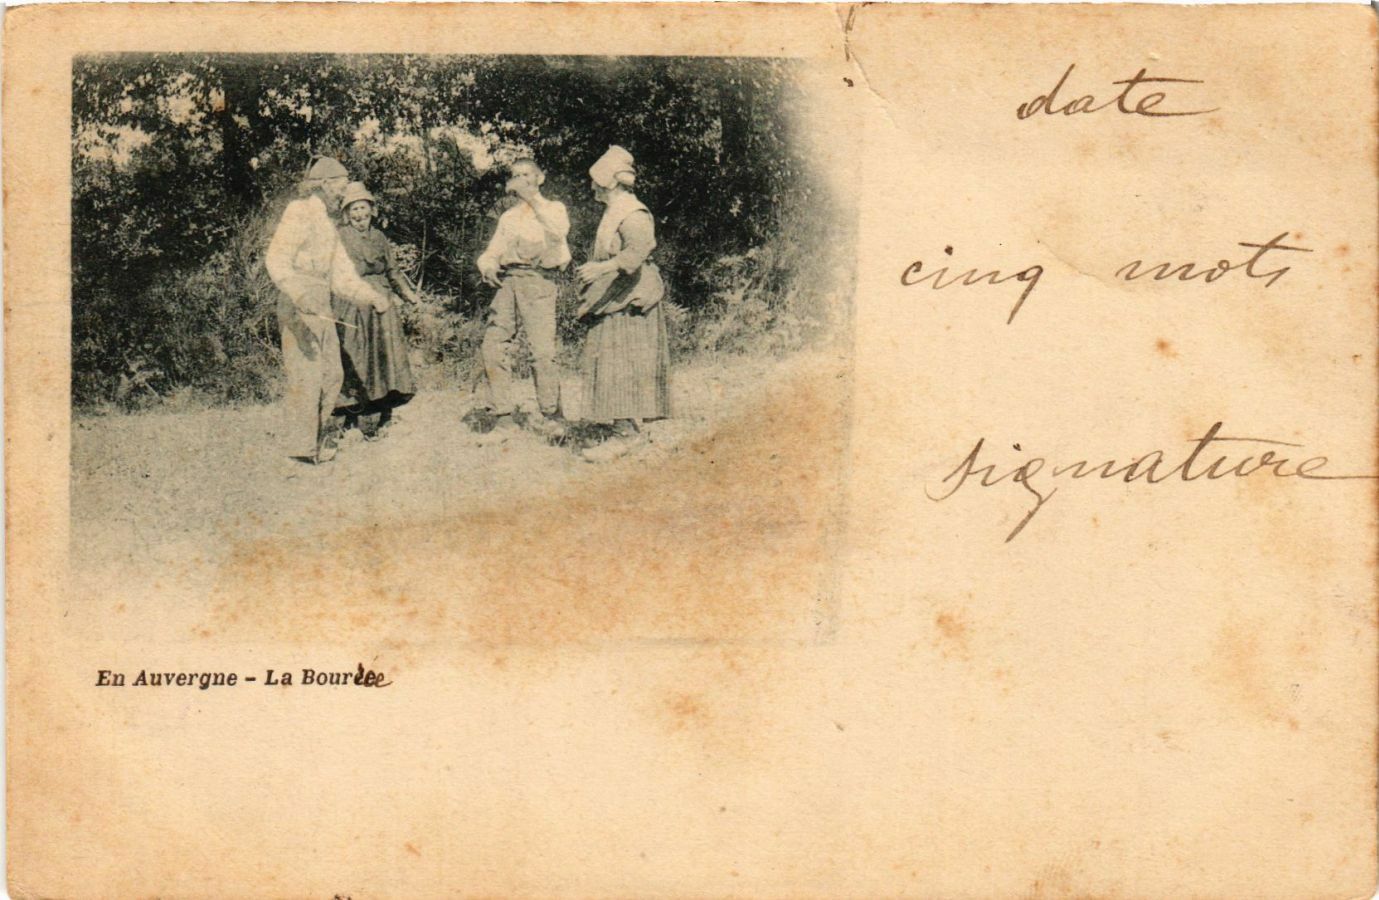 date
cinq mots
signature
En Auvergne - La Bourrée